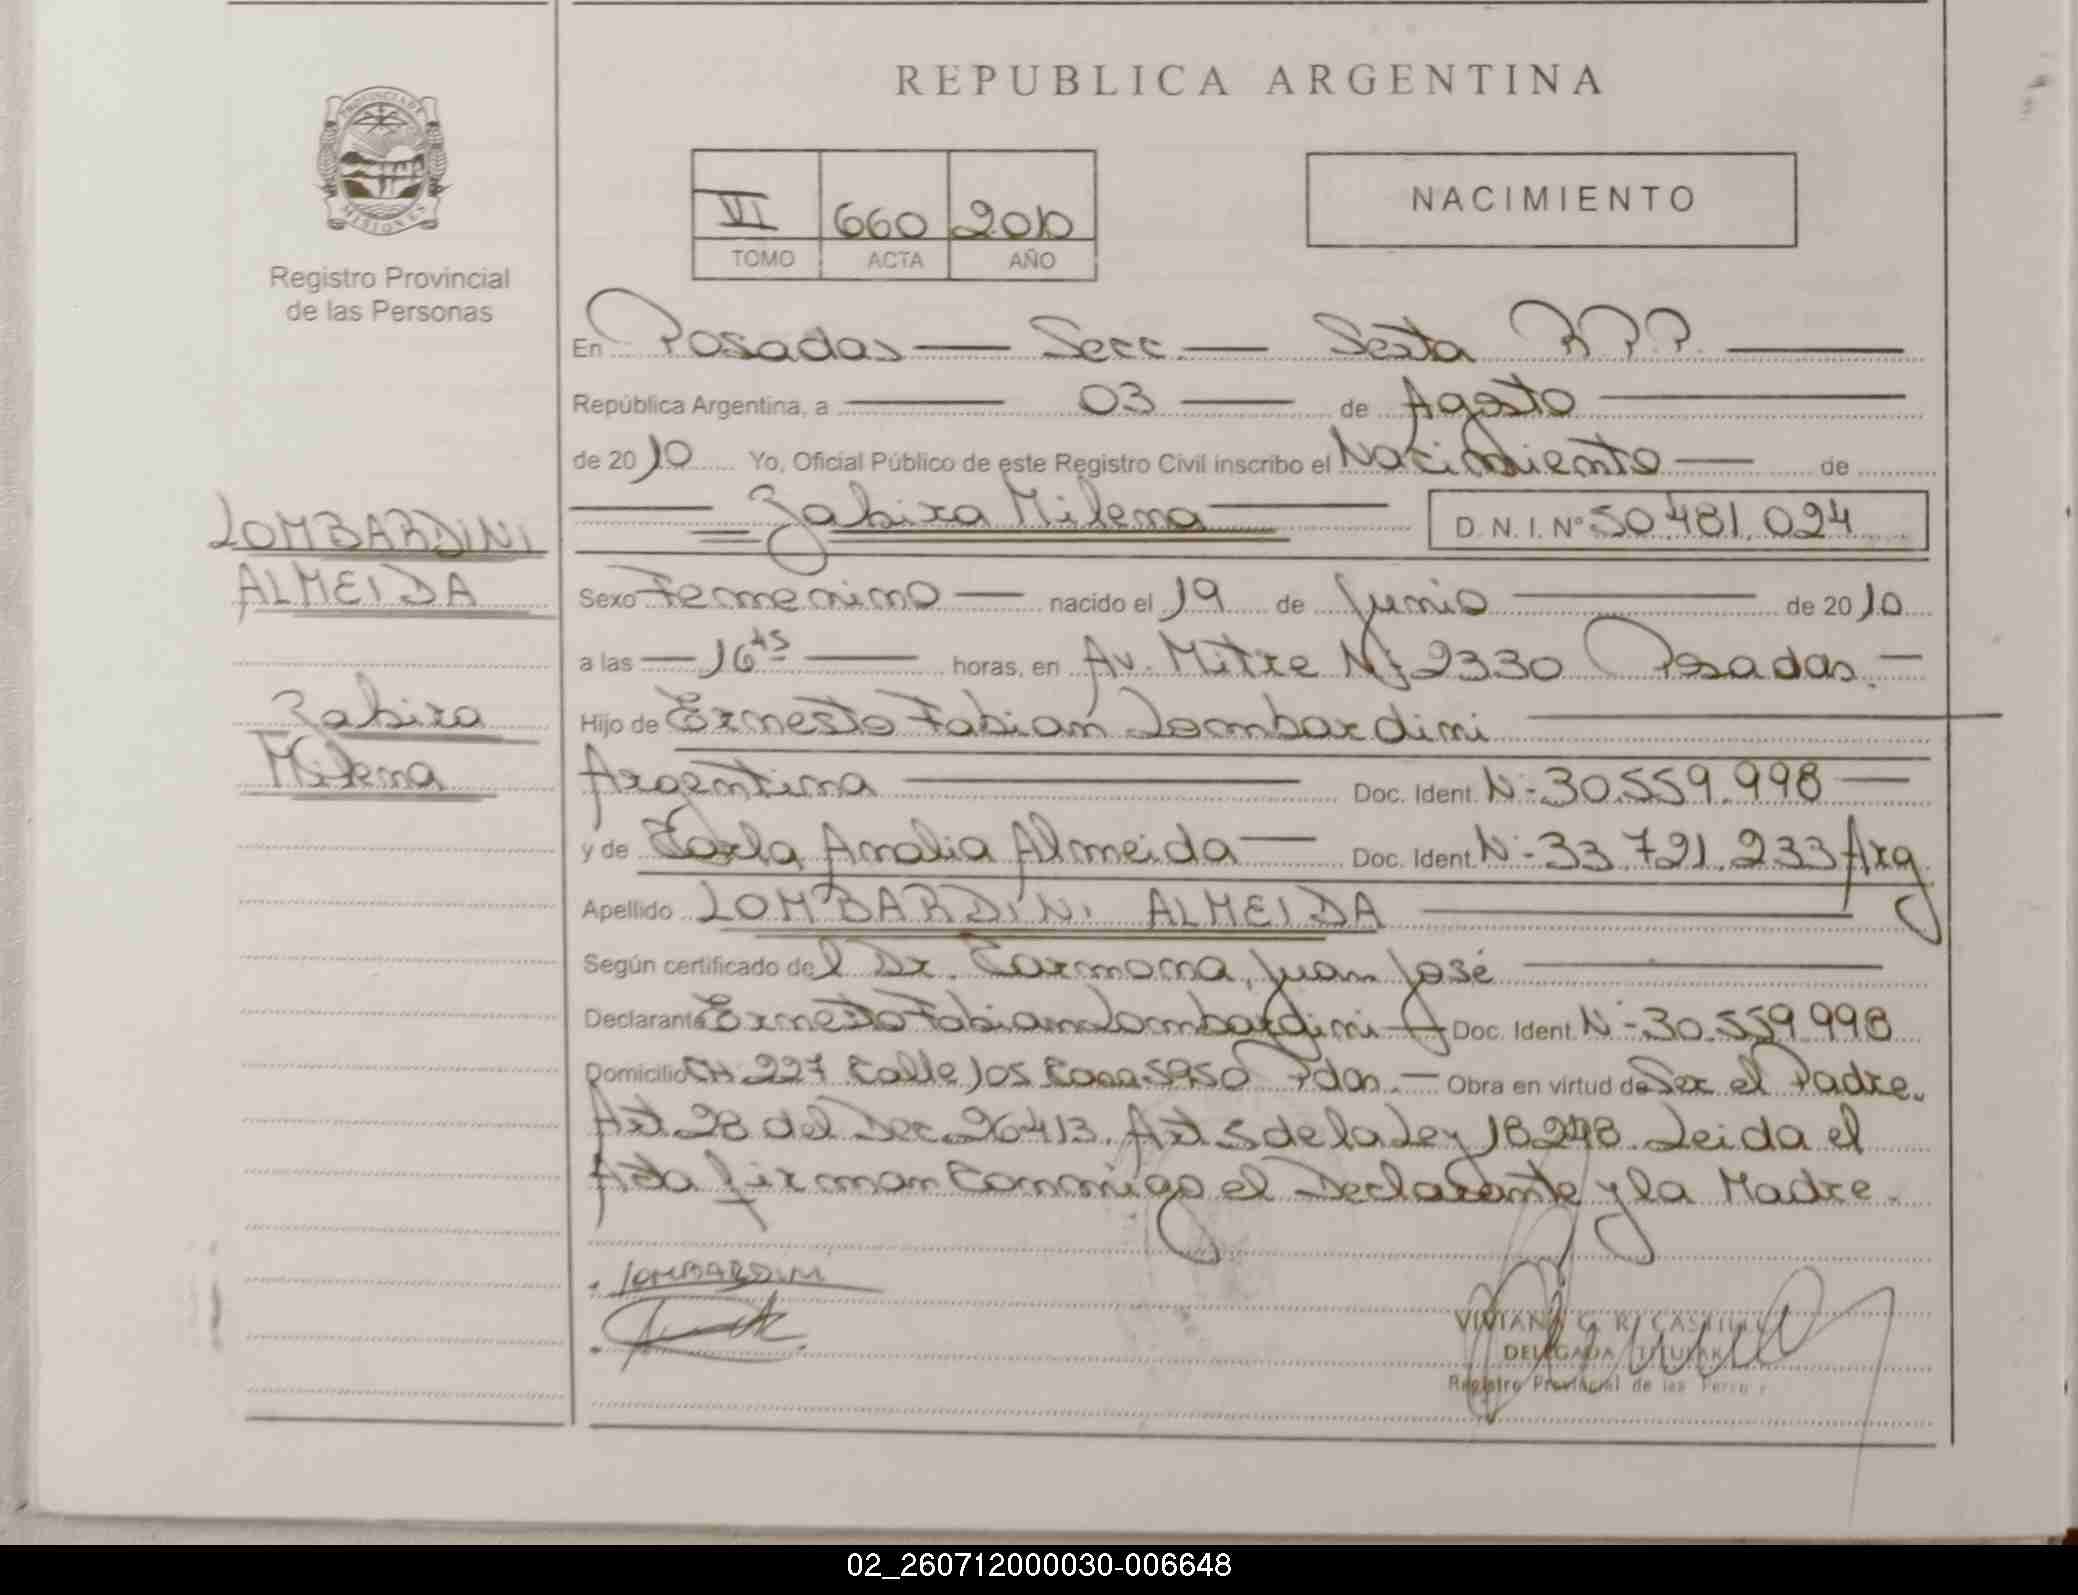 REPUBLICA ARGENTINA
PROVINCIA DE
MISIONES
Registro Provincial
de las Personas
VI 660 2010
TOMO ACTA AÑO
NACIMIENTO
En Posadas — Secc. — Sexta R.P.P. —
República Argentina, a — 03 — de Agosto —
de 2010 Yo, Oficial Público de este Registro Civil inscribo el Nacimiento — de
— Zahira Milena — D. N. I. Nº 50.481.024
LOMBARDINI
ALMEIDA
Zahira
Milena
Sexo Femenino — nacido el 19 de Junio — de 2010
a las — 16 45 — horas, en Av. Mitre Nº 2330 Posadas. —
Hijo de Ernesto Fabian Lombardini —
Argentina — Doc. Ident. Nº 30.559.998 —
y de Carla Analia Almeida — Doc. Ident. Nº 33.721.233 Arg.
Apellido LOMBARDINI ALMEIDA —
Según certificado del Dr. Carmona, Juan José —
Declarante Ernesto Fabian Lombardini — Doc. Ident. Nº 30.559.998
Domicilio CH 227 Calle 105 Casa 5950 Pdas. — Obra en virtud de Ser el Padre.
Art. 28 del Dec. 26413. Art. 5 de la Ley 18248. Leida el
Acta firman conmigo el Declarante y la Madre.
LOMBARDINI
VIVIANA G. R. CASTILLO
DELEGADA TITULAR
Registro Provincial de las
02_260712000030-006648